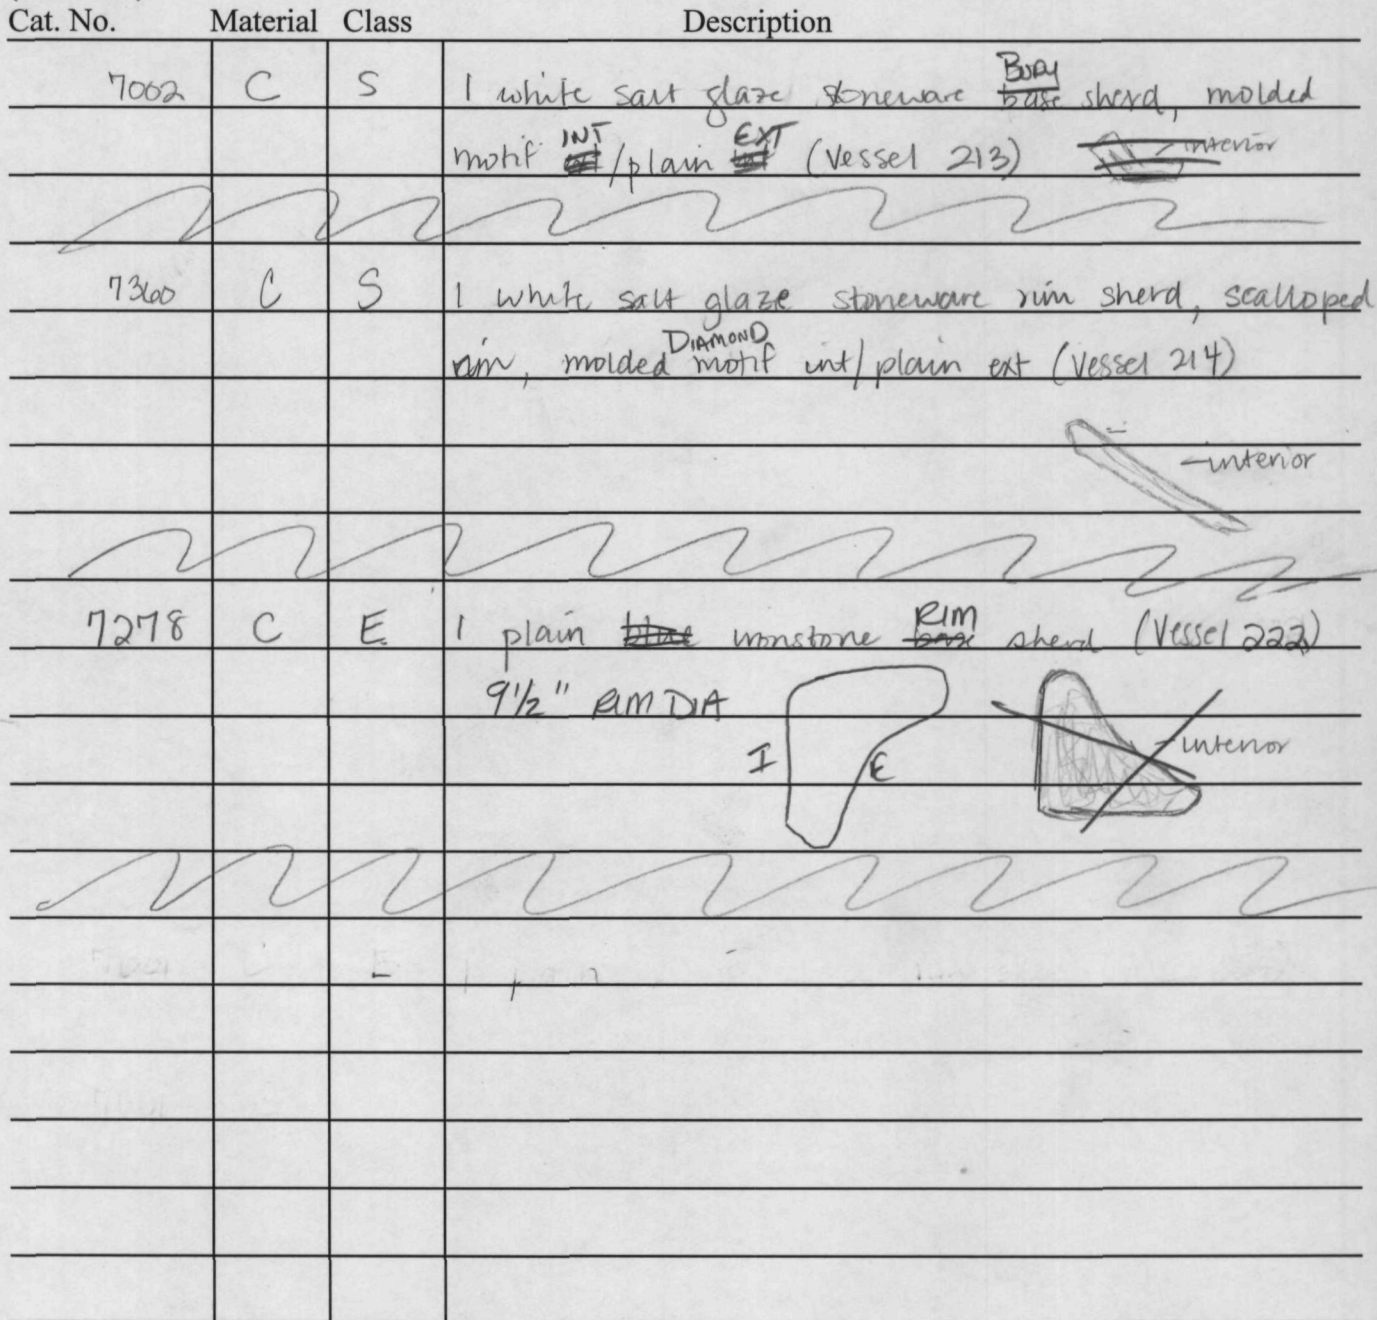 Cat. No. Material Class Description
7002 C S 1 white salt glaze stoneware BODY base sherd, molded
motif INT /plain EXT (Vessel 213) -interior
7360 C S 1 white salt glaze stoneware rim sherd, scalloped
rim, molded DIAMOND motif int/plain ext (Vessel 214)
-interior
7278 C E 1 plain blue ironstone RIM base sherd (Vessel 222)
9 1/2" RIM DIA
I E -interior